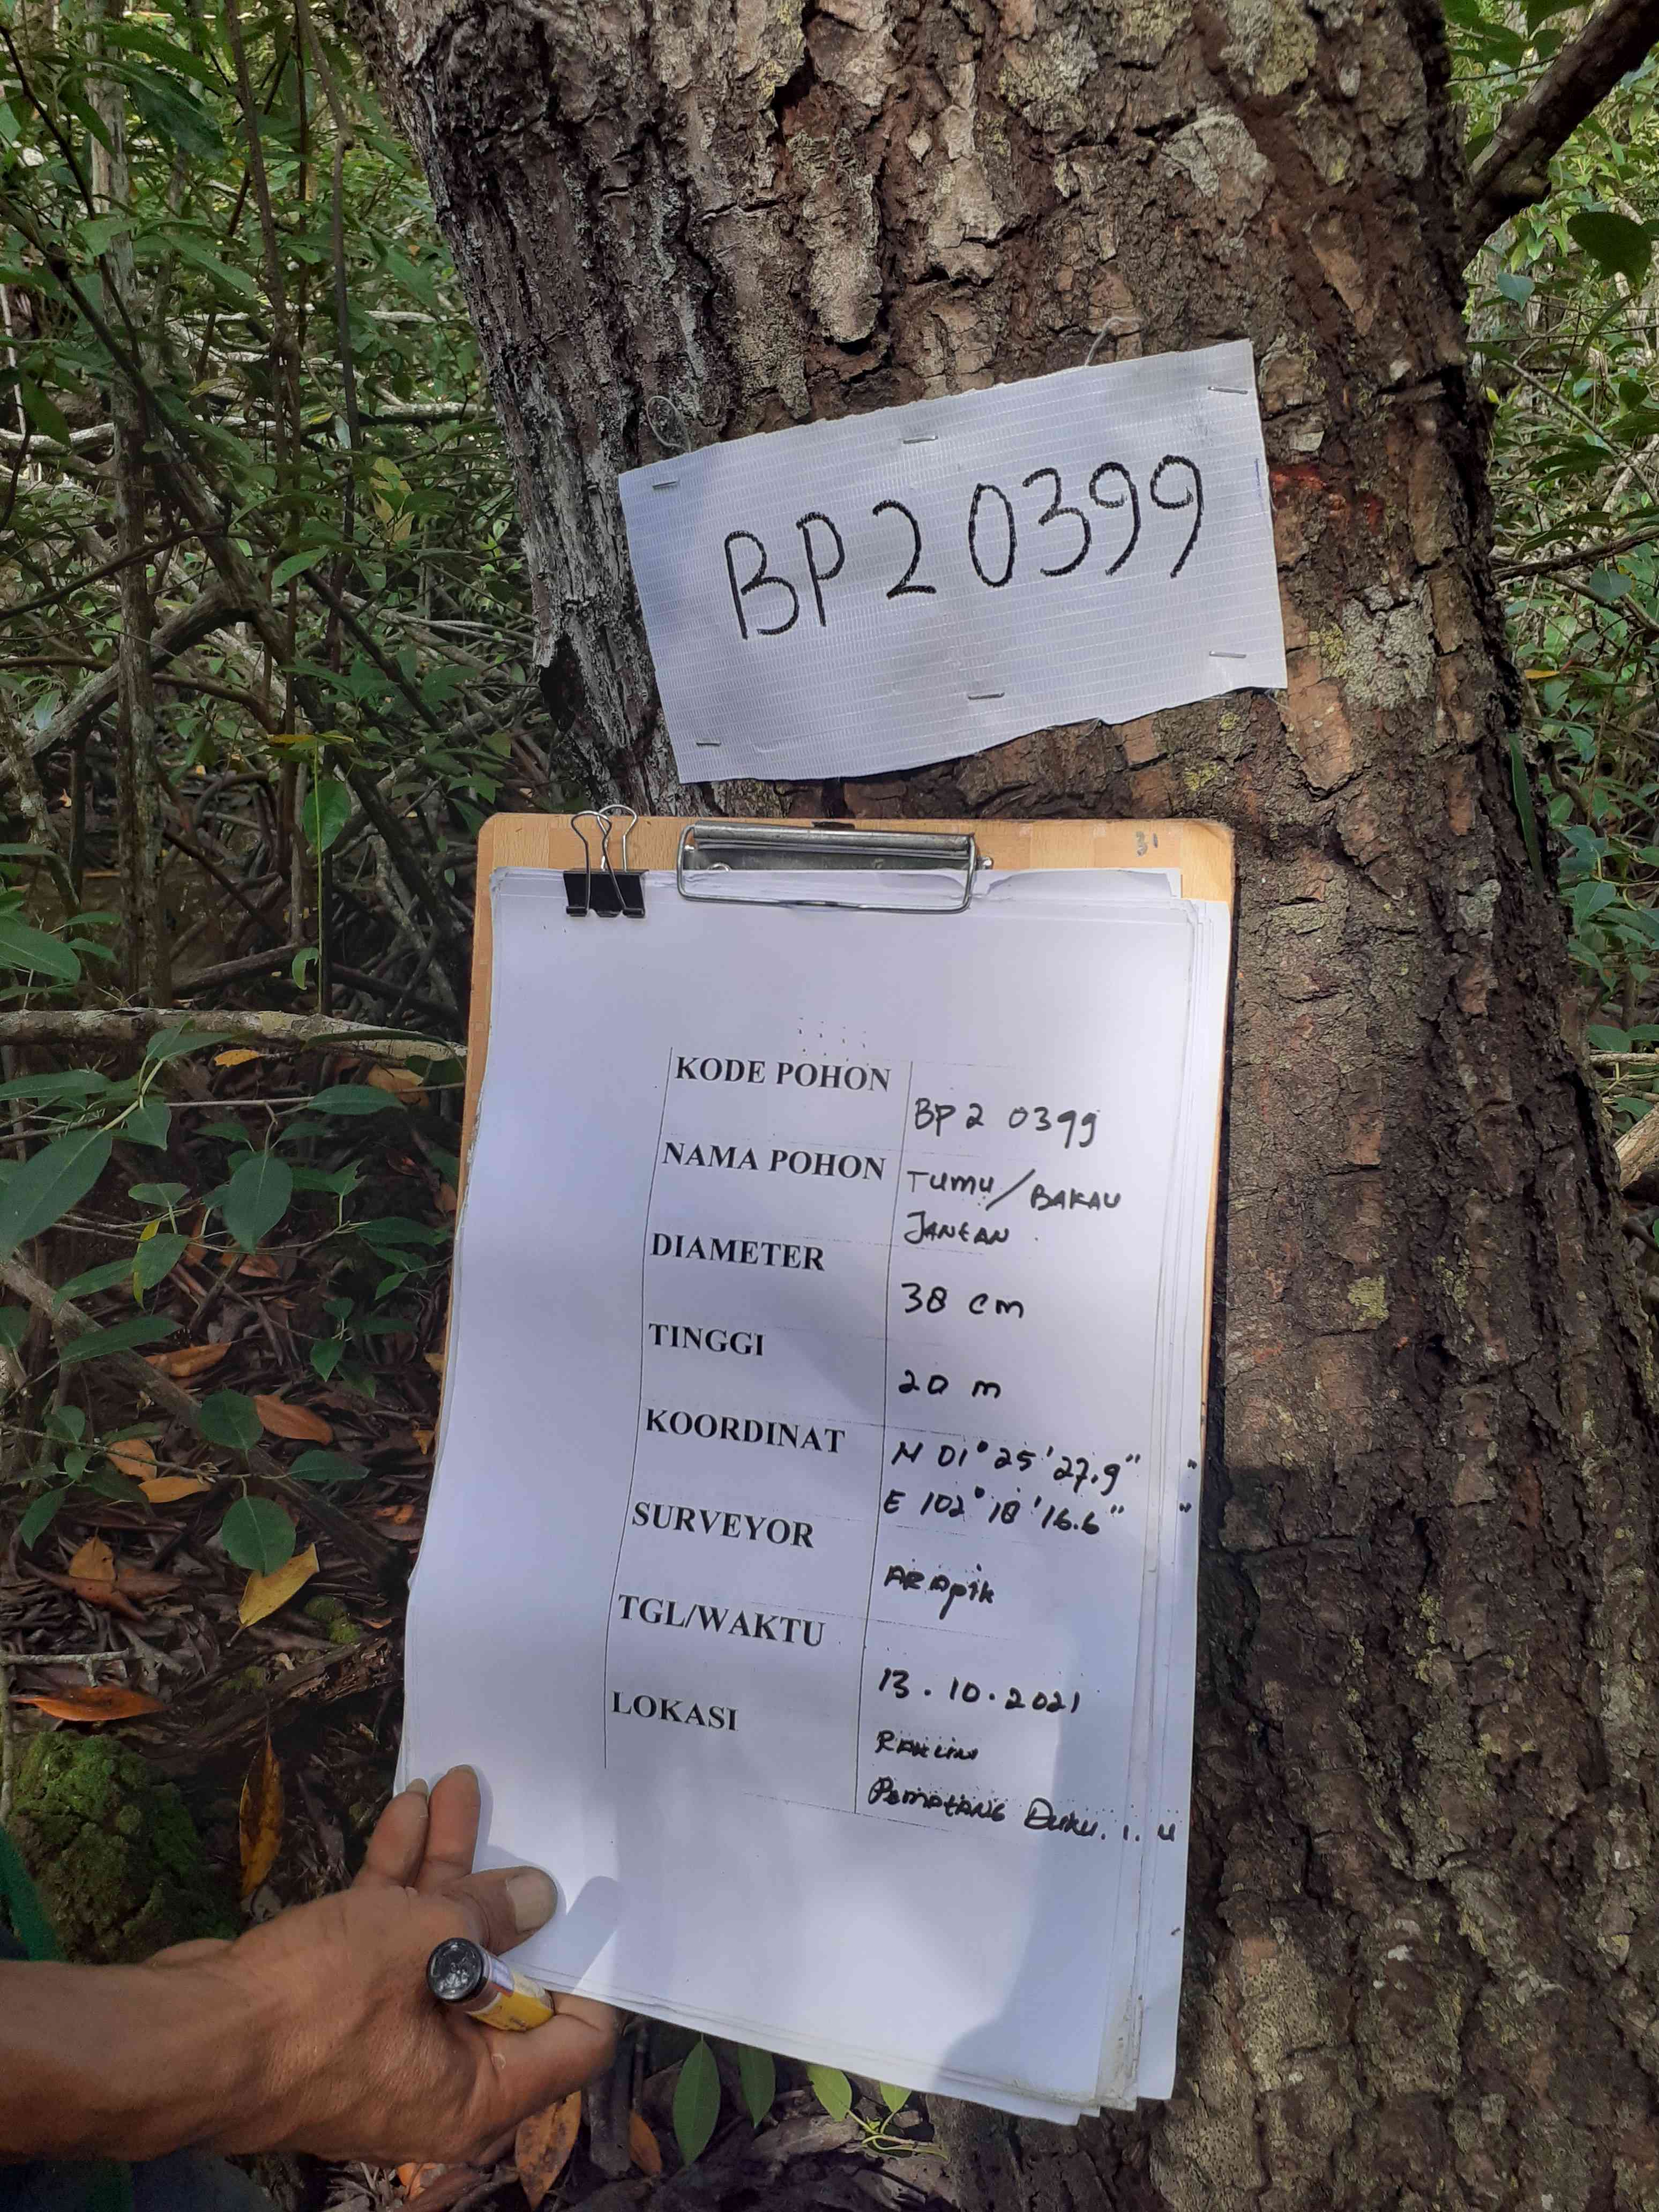 BP2 0399
KODE POHON
BP2 0399
NAMA POHON
Tumu/BAKAU
JANTAN
DIAMETER
38 cm
TINGGI
20 m
KOORDINAT
N 01° 25' 27.9"
E 102° 18' 16.6"
SURVEYOR
ARApik
TGL/WAKTU
13.10.2021
LOKASI
Pematang Duku